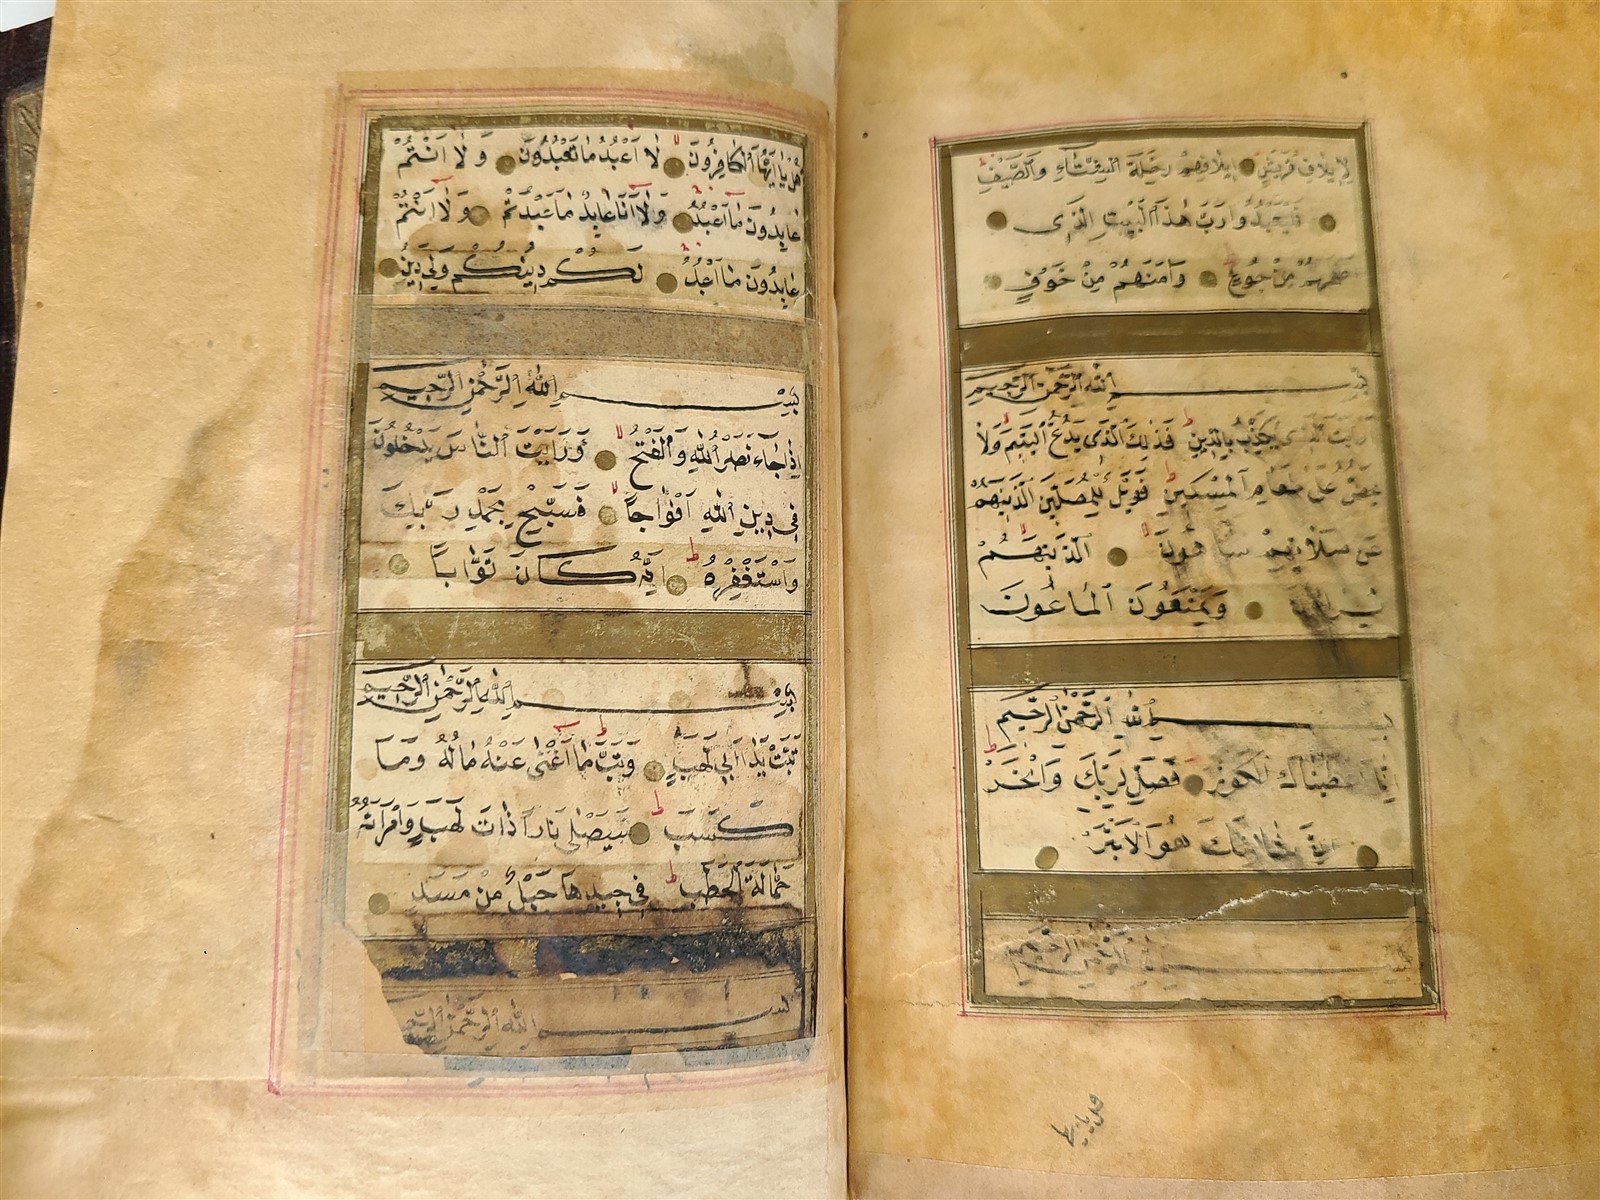 لِإِيلَافِ قُرَيْشٍ إِيلَافِهِمْ رِحْلَةَ الشِّتَاءِ وَالصَّيْفِ
فَلْيَعْبُدُوا رَبَّ هٰذَا الْبَيْتِ الَّذِى
مِنْ جُوعٍ وَآمَنَهُمْ مِنْ خَوْفٍ
بِسْمِ اللّٰهِ الرَّحْمٰنِ الرَّحِيمِ
اَرَاَيْتَ الَّذِى يُكَذِّبُ بِالدِّينِ فَذٰلِكَ الَّذِى يَدُعُّ الْيَتِيمَ وَلَا
يَحُضُّ عَلَى طَعَامِ الْمِسْكِينِ فَوَيْلٌ لِلْمُصَلِّينَ الَّذِينَ هُمْ
عَنْ صَلَاتِهِمْ سَاهُونَ الَّذِينَ هُمْ
يُرَاؤُنَ وَيَمْنَعُونَ الْمَاعُونَ
بِسْمِ اللّٰهِ الرَّحْمٰنِ الرَّحِيمِ
اِنَّا اَعْطَيْنَاكَ الْكَوْثَرَ فَصَلِّ لِرَبِّكَ وَانْحَرْ
اِنَّ شَانِئَكَ هُوَ الْاَبْتَرُ
بِسْمِ اللّٰهِ الرَّحْمٰنِ الرَّحِيمِ
قل يا ايها
قُلْ يَا اَيُّهَا الْكَافِرُونَ لَا اَعْبُدُ مَا تَعْبُدُونَ وَلَا اَنْتُمْ
عَابِدُونَ مَا اَعْبُدُ وَلَا اَنَا عَابِدٌ مَا عَبَدْتُمْ وَلَا اَنْتُمْ
عَابِدُونَ مَا اَعْبُدُ لَكُمْ دِينُكُمْ وَلِيَ دِينِ
بِسْمِ اللّٰهِ الرَّحْمٰنِ الرَّحِيمِ
اِذَا جَاءَ نَصْرُ اللّٰهِ وَالْفَتْحُ وَرَاَيْتَ النَّاسَ يَدْخُلُونَ
فِي دِينِ اللّٰهِ اَفْوَاجًا فَسَبِّحْ بِحَمْدِ رَبِّكَ
وَاسْتَغْفِرْهُ اِنَّهُ كَانَ تَوَّابًا
بِسْمِ اللّٰهِ الرَّحْمٰنِ الرَّحِيمِ
تَبَّتْ يَدَا اَبِي لَهَبٍ وَتَبَّ مَا اَغْنَى عَنْهُ مَالُهُ وَمَا
كَسَبَ سَيَصْلَى نَارًا ذَاتَ لَهَبٍ وَامْرَاَتُهُ
حَمَّالَةَ الْحَطَبِ فِي جِيدِهَا حَبْلٌ مِنْ مَسَدٍ
بِسْمِ اللّٰهِ الرَّحْمٰنِ الرَّحِيمِ